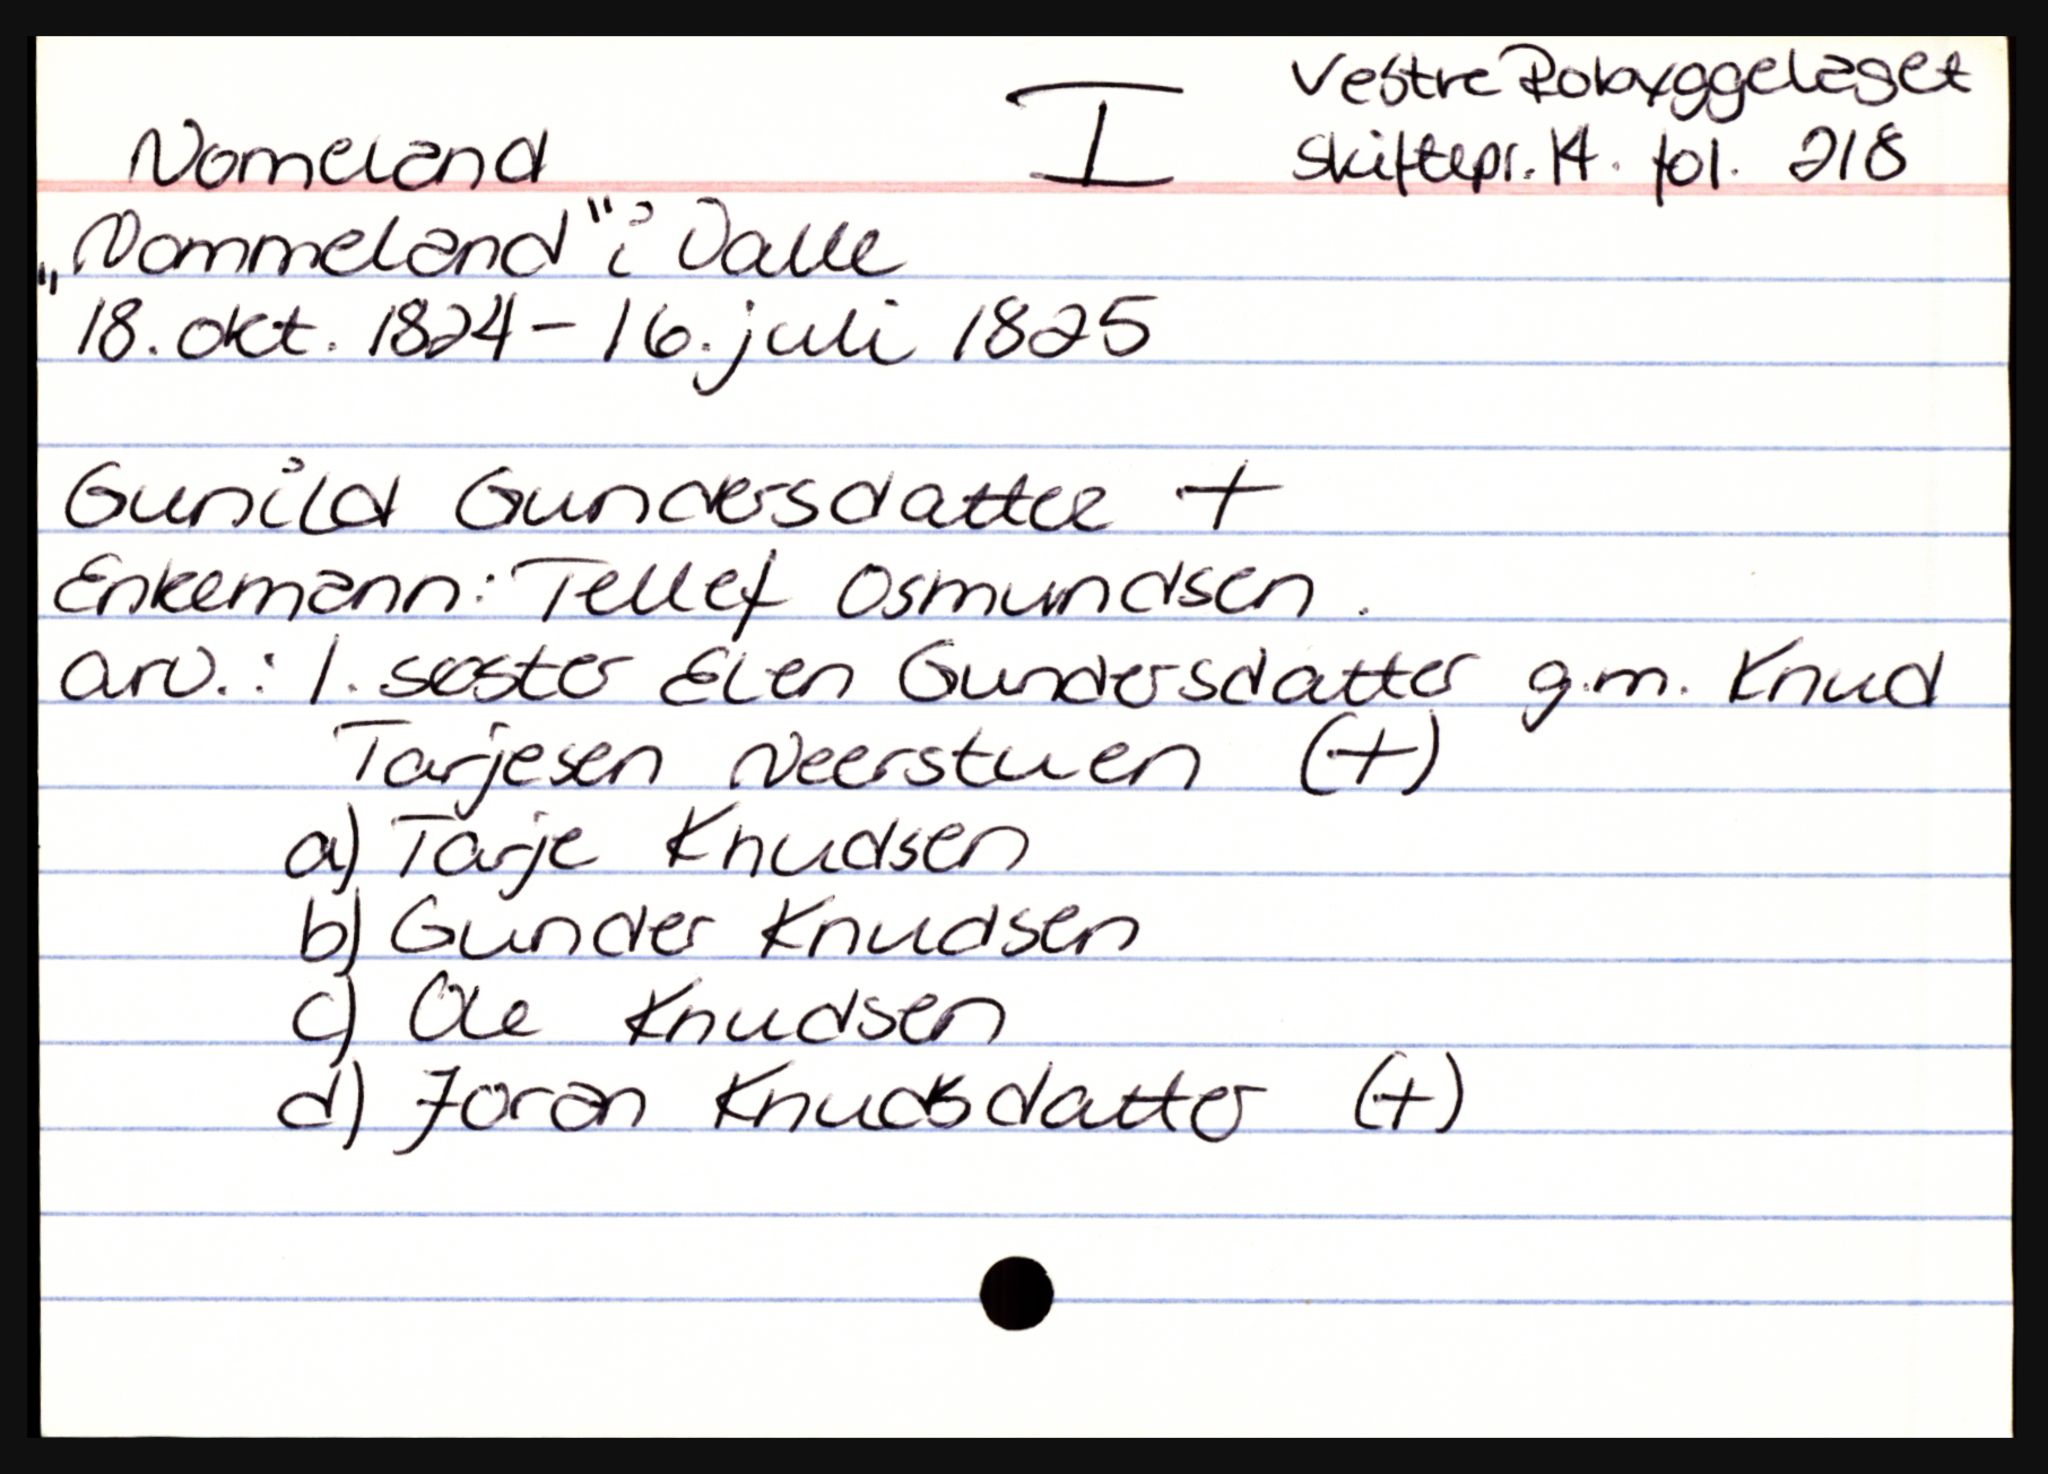 Nomeland I Vestre Robyggelaget
Skiftepr. 14. fol. 218
„Nommeland" i Valle
18. okt. 1824 - 16. juli 1825
Gunild Gundersdatter +
Enkemann: Tellef Osmundsen.
arv.: 1. søster Elen Gundersdatter g.m. Knud
Tarjesen Neerstuen (+)
a) Tarje Knudsen
b) Gunder Knudsen
c) Ole Knudsen
d) Joran Knudsdatter (+)